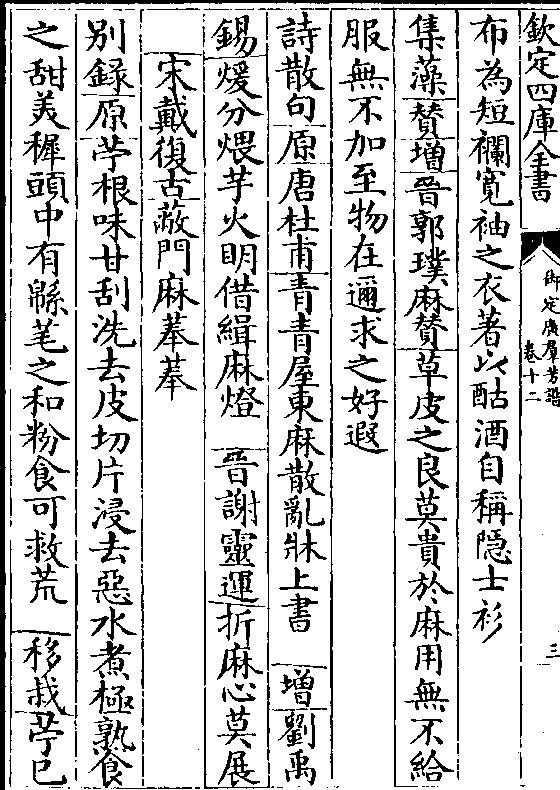 欽定四庫全書
御定廣羣芳譜
卷十二
三
布為短襴寬袖之衣著以酤酒自稱隠士衫
集藻贊增晉郭璞麻贊草皮之良莫貴於麻用無不給
服無不加至物在邇求之好遐
詩散句原唐杜甫青青屋東麻散亂牀上書　增劉禹
錫煖分煨芋火明借緝麻燈　晉謝靈運折麻心莫展
宋戴復古蔽門麻蓁蓁
别録原苧根味甘刮洗去皮切片浸去惡水煮極熟食
之甜美穉頭中有緜芼之和粉食可救荒　移栽苧已